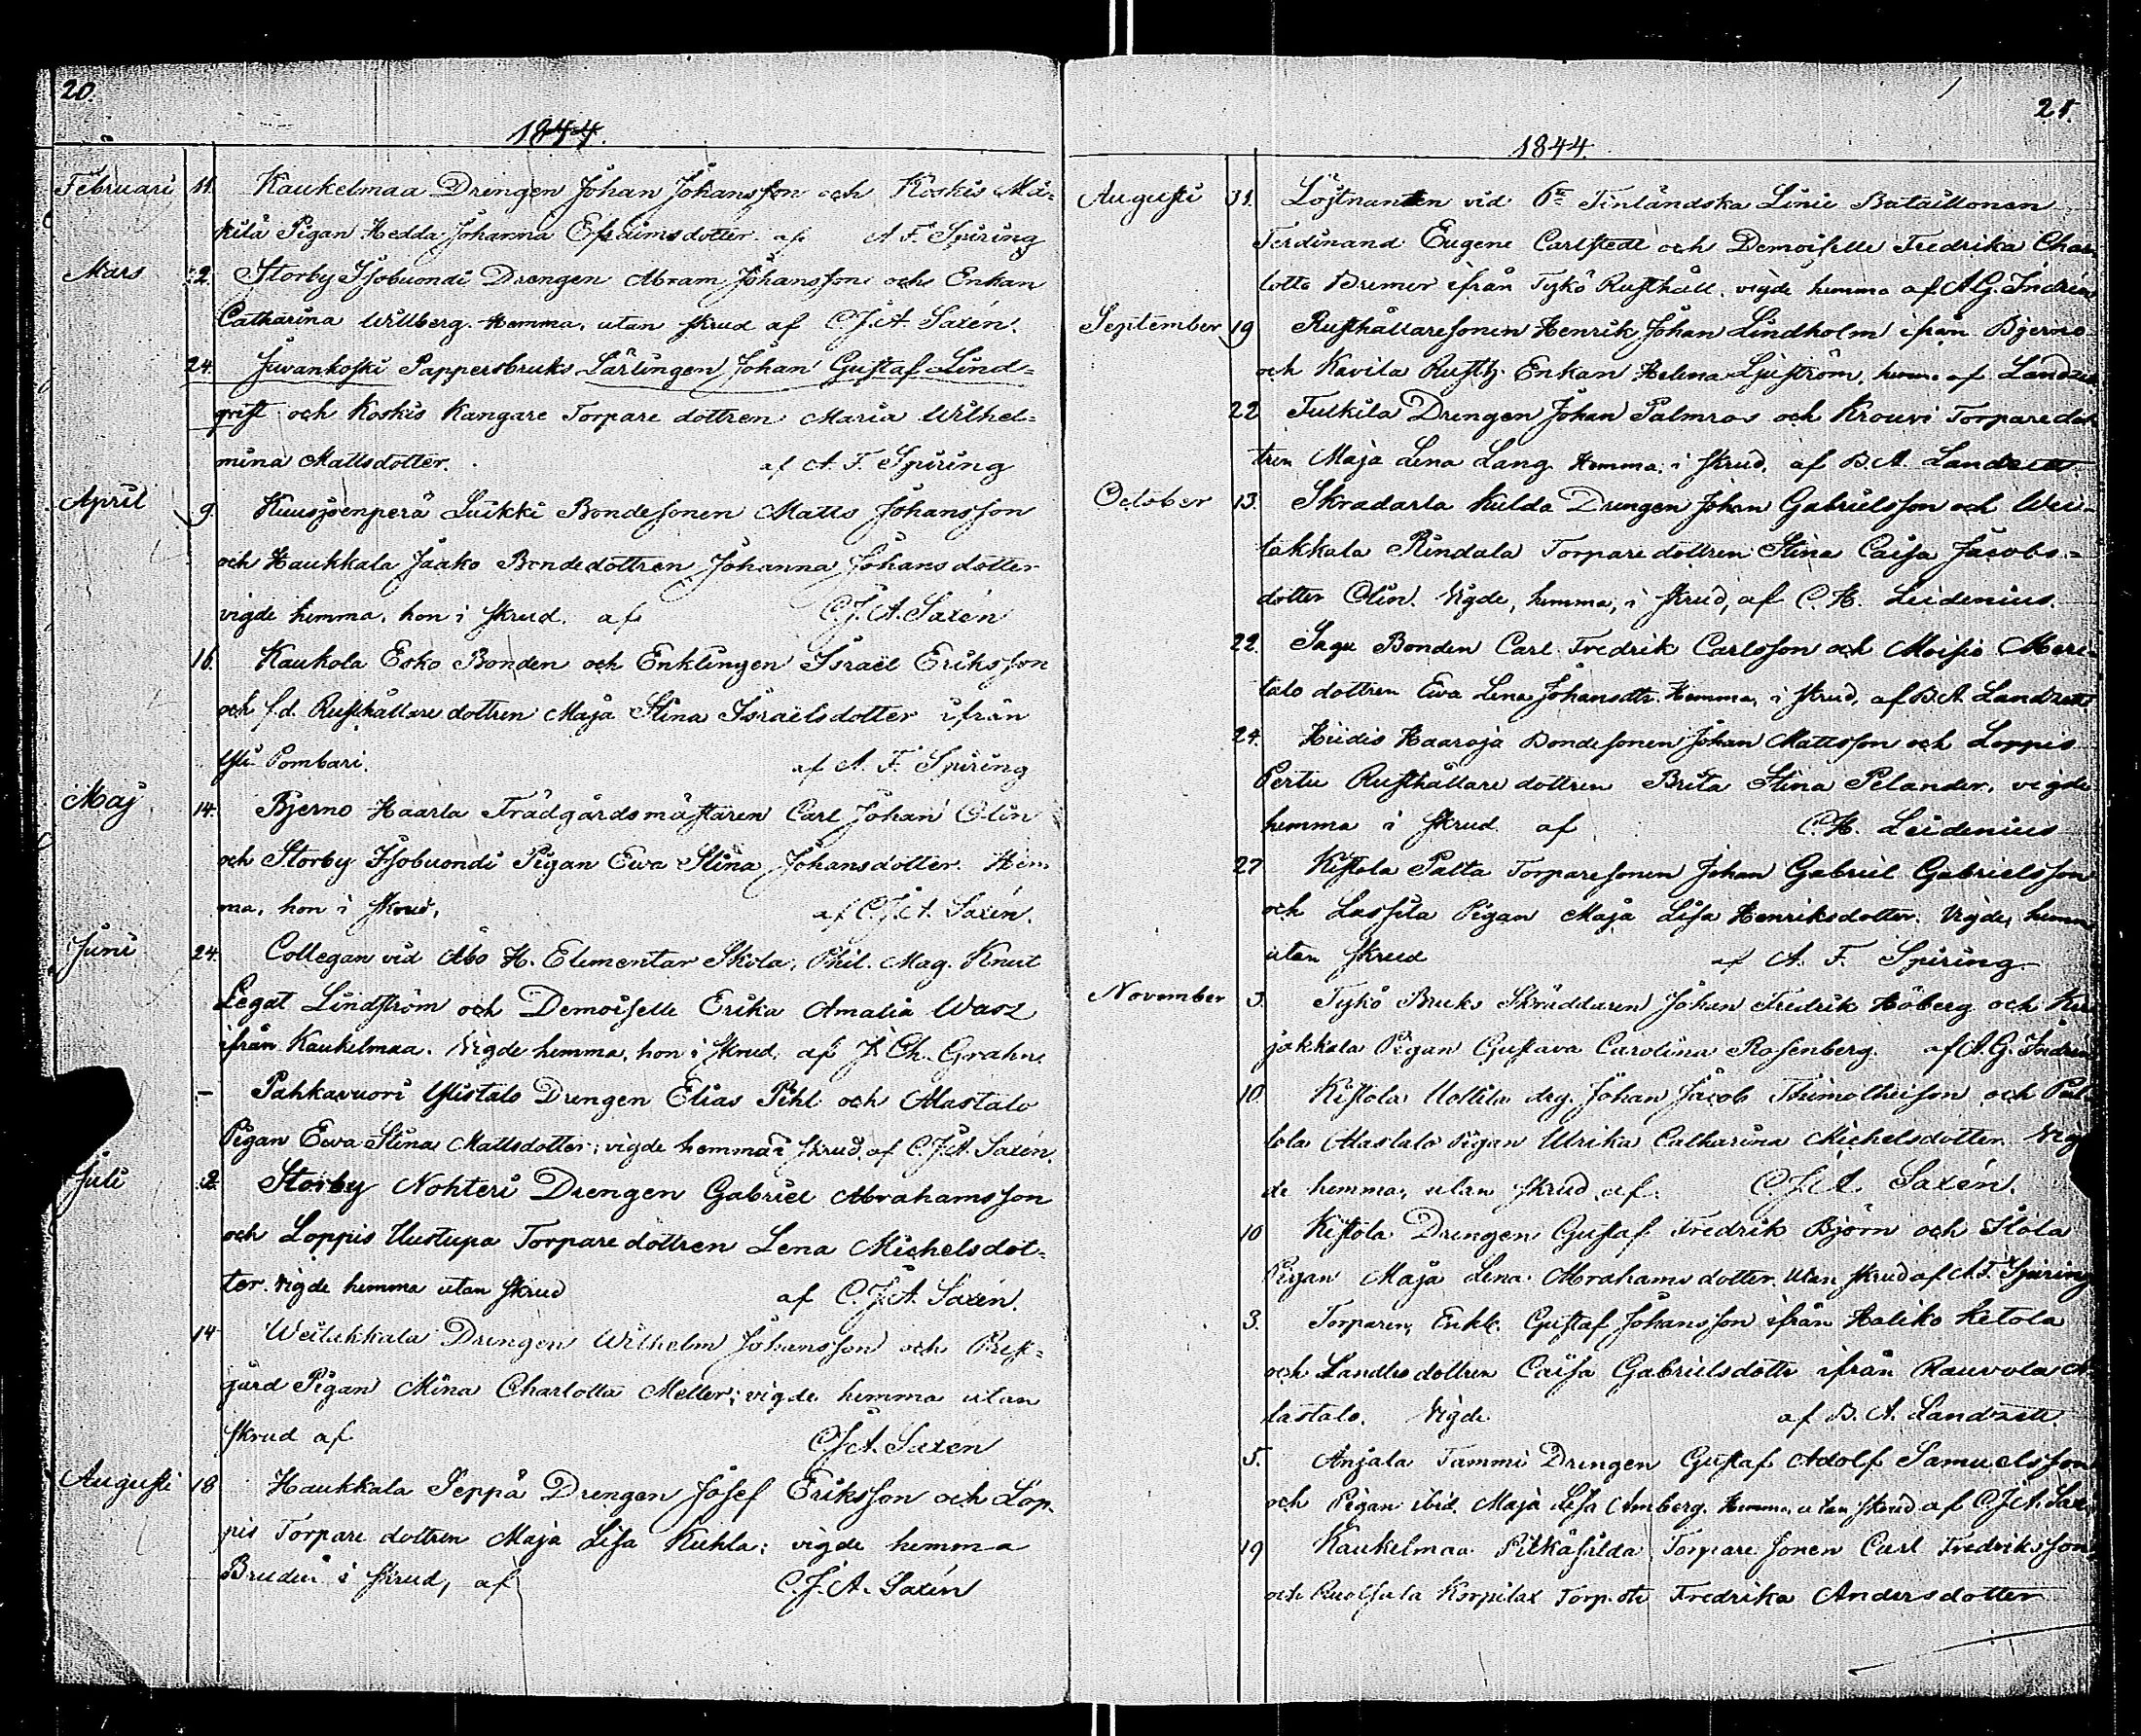 20.
1844.
Februari 11. Kaukelmaa Drengen Johan Johansson och Koskis Mä-
kilä Pigan Hedda Johanna Efraimsdotter. af A. F. Spiring
Mars 2. Storby Isobuondi Drengen Abram Johansson och Enkan
Catharina Willberg. Hemma, utan skrud af C. J. A. Saxén.
24. Juvankoski Pappersbruks Lärlingen Johan Gustaf Lind-
qvist och Koskis Kangare Torpare dottren Maria Wilhel-
mina Mattsdotter. af A. F. Spiring
April 9. Kuusjoenperä Luikki Bondesonen Matts Johansson
och Haukkala Jaako Bondedottren Johanna Johansdotter
vigde hemma, hon i skrud. af C. J. A. Saxén
16. Kaukola Esko Bonden och Enklingen Israel Eriksson
och f.d. Rusthållare dottren Maja Stina Israelsdotter ifrån
Yli Pombari. af A. F. Spiring
Maj 14. Bjerno Haarla Trädgårdsmästaren Carl Johan Olin
och Storby Isobuondi Pigan Ewa Stina Johansdotter. Hem
ma, hon i skrud, af C. J. A. Saxén.
Juni 24. Collegan vid Åbo H. Elementar Skola, Phil. Mag. Knut
Legat Lindström och Demoiselle Erika Amalia Wasz
ifrån Kaukelmaa. Vigde hemma, hon i skrud, af J. Ch. Grahn.
— Pahkavuori Ylistalo Drengen Elias Pihl och Alastalo
Pigan Ewa Stina Mattsdotter; vigde hemma i skrud, af C. J. A. Saxén.
Juli 2. Storby Nohteri Drengen Gabriel Abrahamsson
och Loppis Uustupa Torpare dottren Lena Michelsdot-
ter. Vigde hemma utan skrud af C. J. A. Saxén.
14 Weitakkala Drengen Wilhelm Johansson och Prest-
gård Pigan Mina Charlotta Meller; vigde hemma utan
skrud af C. J. A. Saxén
Augusti 18 Haukkala Seppä Drengen Josef Eriksson och Lop-
pis Torpare dottren Maja Lisa Kuhla; vigde hemma
Bruden i skrud, af C. J. A. Saxén
21.
1844.
Augusti 31. Löjtnanten vid 6te Finländska Linie Bataillonen
Ferdinand Eugene Carlstedt och Demoiselle Fredrika Char-
lotta Bremer ifrån Tykö Rusthåll. vigde hemma af A. G. Indrén
September 19 Rusthållaresonen Henrik Johan Lindholm ifrån Bjerno
och Kavila Rusth. Enkan Helena Ljuström, hemma af Landzett
22 Tulkila Drengen Johan Palmros och Krouvi Torparedot
tren Maja Lena Lang. Hemma, i skrud, af B. A. Landzett
October 13. Skradarla Kulda Drengen Johan Gabrielsson och Wei-
takkala Rindala Torpare dottren Stina Caisa Jacobs-
dotter Olin. Vigde, hemma, i skrud, af C. H. Leidenius.
22. Sagu Bonden Carl Fredrik Carlsson och Moisio Meri-
talo dottren Ewa Lena Johansdtr. Hemma, i skrud, af B. A. Landzett.
24. Hiidis Haaroja Bondesonen Johan Mattsson och Loppis
Pertu Rusthållare dottren Brita Stina Pelander, vigde
hemma i skrud af C. H. Leidenius
27 Kistola Palta Torparesonen Johan Gabriel Gabrielsson
och Lassila Pigan Maja Lisa Henriksdotter. Vigde, hemma
utan skrud af A. F. Spiring
November 3. Tykö Bruks Skräddaren Johan Fredrik Höberg och Kir
jakkala Pigan Gustava Carolina Rosenberg. af A. G. Indren
10. Kistola Uotila drg. Johan Jacob Thimotheison och Pul
lola Alastalo Pigan Ulrika Catharina Michelsdotter. Vig
de hemma, utan skrud af C. J. A. Saxén.
10 Kistola Drengen Gustaf Fredrik Björn och Ståla
Pigan Maja Lena Abrahamsdotter. Utan skrud af A. F. Spiring
3. Torparen, Enkl. Gustaf Johansson ifrån Haliko Ketola
och Landbo dottren Caisa Gabrielsdottr ifrån Rauvola A-
lastalo. Vigde af B. A. Landzett.
5. Anjala Tammi Drengen Gustaf Adolf Samuelsson
och Pigan ibid. Maja Lisa Amberg. Hemma, utan skrud af C. J. A. Saxén
19 Kaukelmaa Pitkäsilda Torpare sonen Carl Fredriksson
och Korpilax Torp. dtr Fredrika Andersdotter